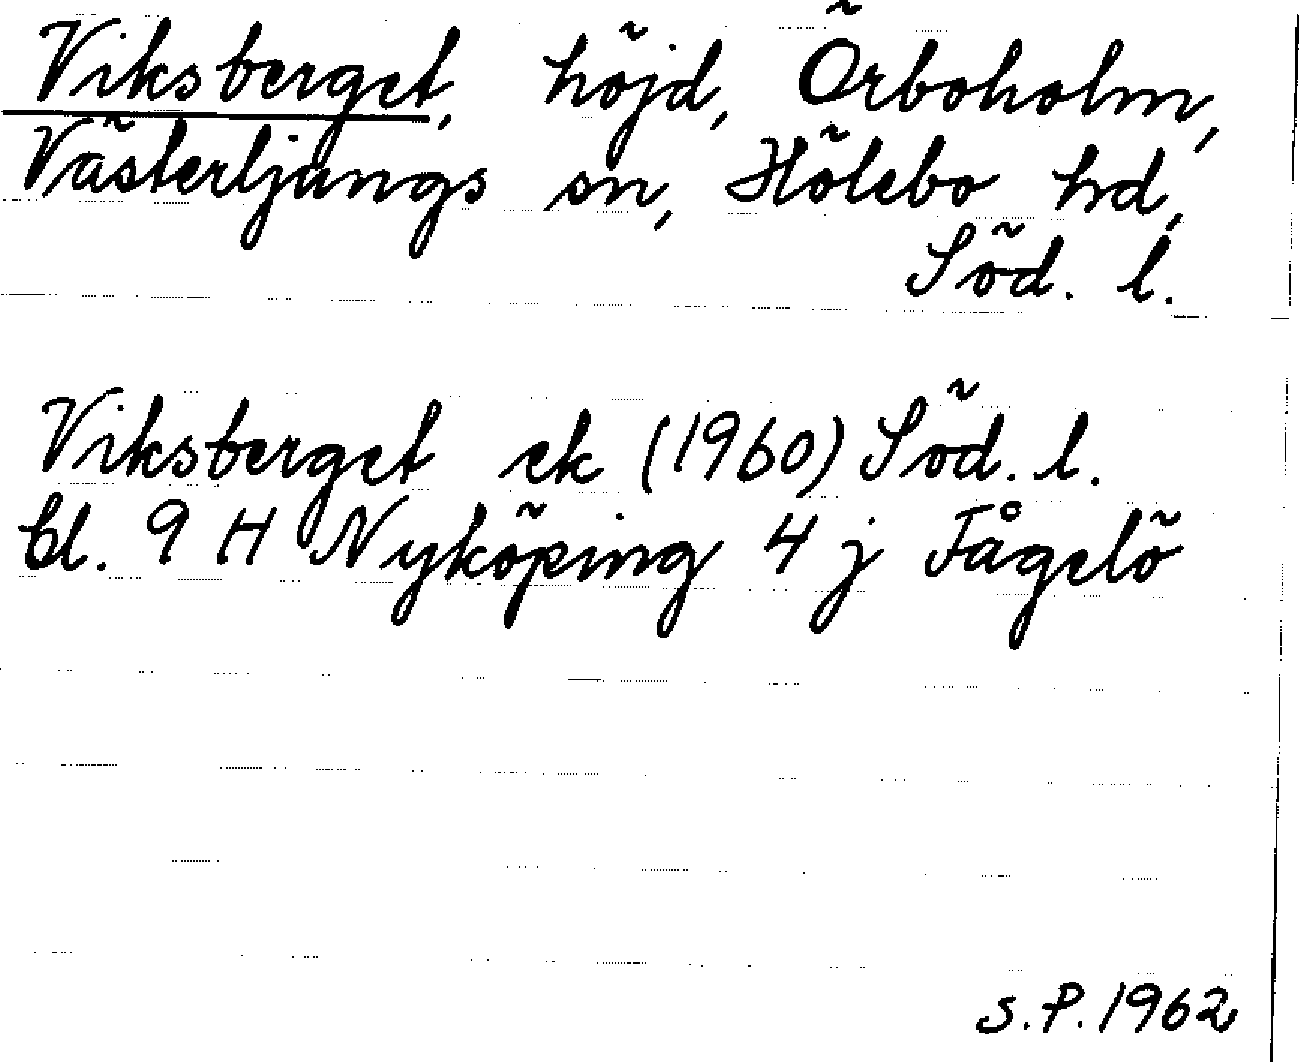 Viksberget, höjd, Örboholm,
Västerljungs sn, Hölebo hd,
Söd. l.
Viksberget ek (1960) Söd. l.
bl. 9 H Nyköping 4 j Fågelö
S.P. 1962